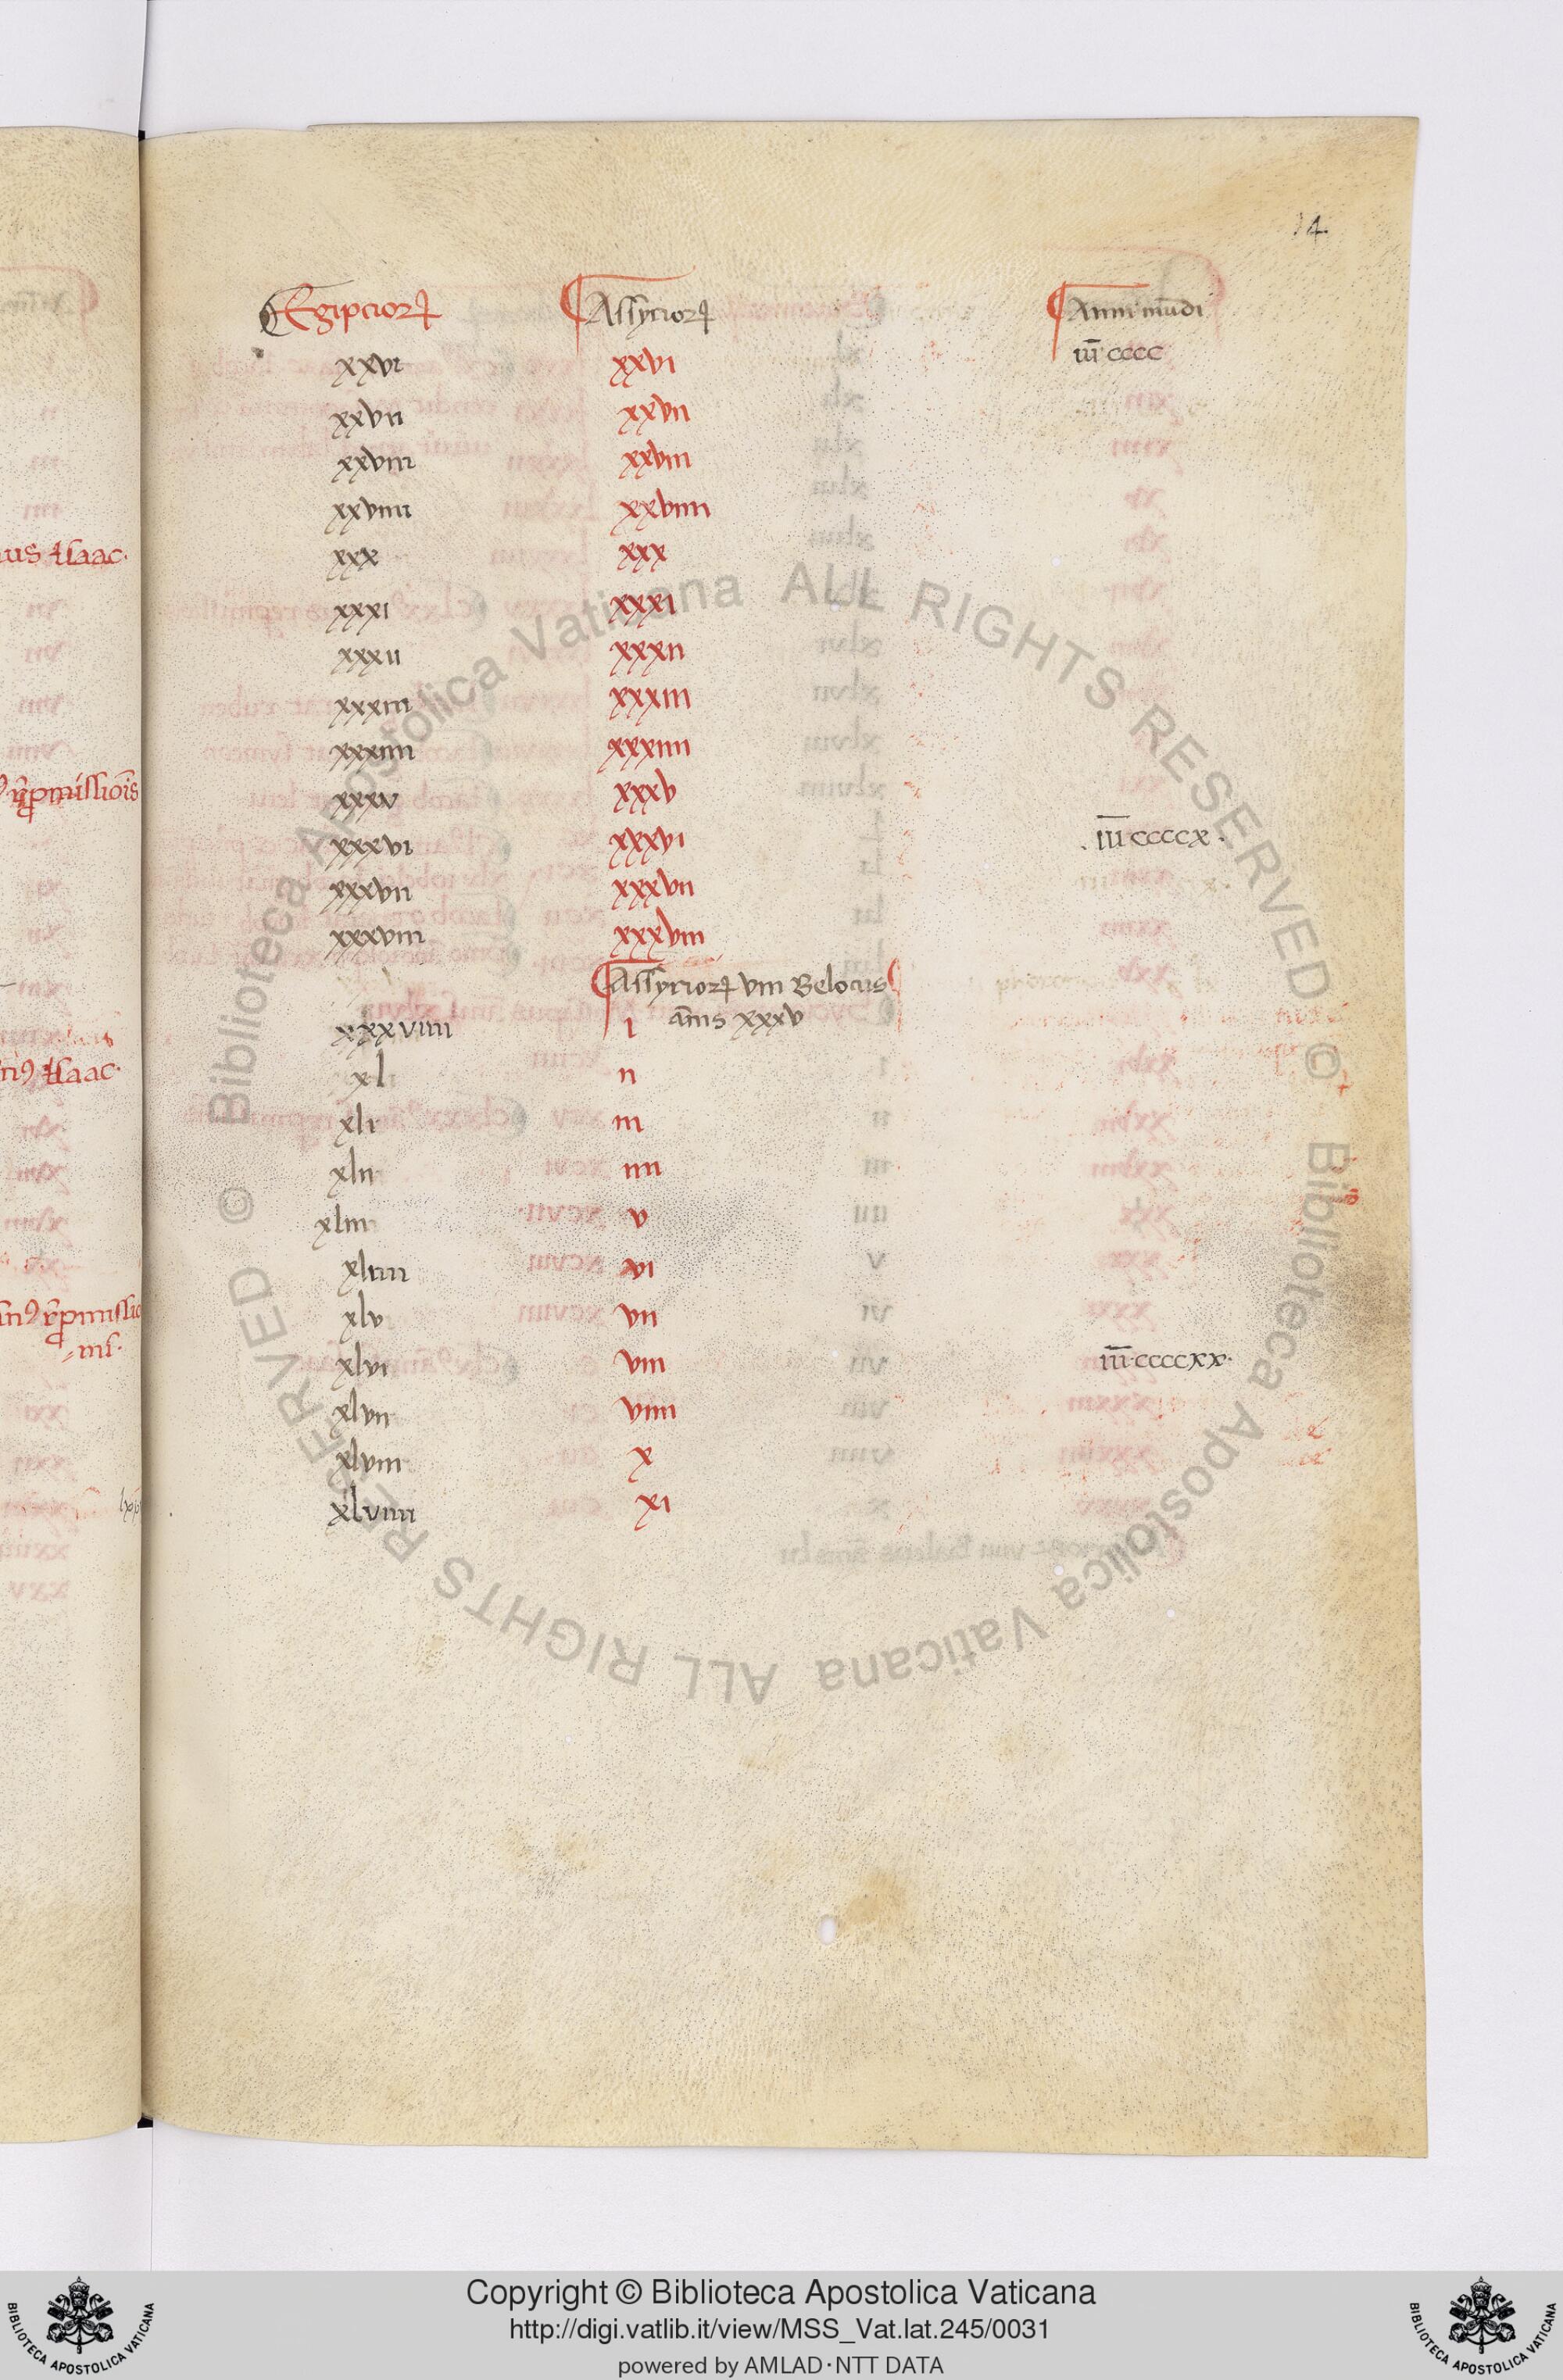 14.
Egipcioꝝ Assyrioꝝ Anni mūdi
xxvi xxvi iii̅ cccc
xxvii xxvii
xxviii xxviii
xxviiii xxviiii
xxx xxx
xxxi xxxi
xxxii xxxii
xxxiii xxxiii
xxxiiii xxxiiii
xxxv xxxv
xxxvi xxxvi .iii̅ ccccx.
xxxvii xxxvii
xxxviii xxxviii
Assyrioꝝ viii Belocus
ānis xxxv
xxxviiii i
xl ii
xli iii
xlii iiii
xliii v
xliiii vi
xlv vii
xlvi viii iii̅ ccccxx.
xlvii viiii
xlviii x
xlviiii xi
us ysaac.
ysaac.
© Biblioteca Apostolica Vaticana ALL RIGHTS RESERVED © Biblioteca Apostolica Vaticana ALL RIGHTS RESERVED
BIBLIOTECA APOSTOLICA VATICANA
Copyright © Biblioteca Apostolica Vaticana
http://digi.vatlib.it/view/MSS_Vat.lat.245/0031
powered by AMLAD·NTT DATA
BIBLIOTECA APOSTOLICA VATICANA